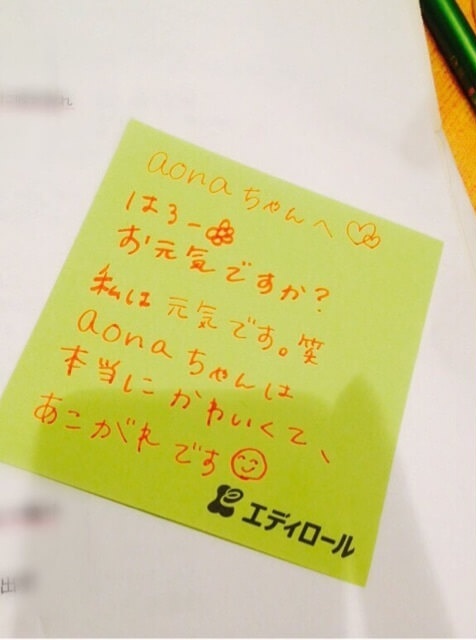 aonaちゃんへ♡
はろー
お元気ですか？
私は元気です。笑
aonaちゃんは
本当にかわいくて、
あこがれです☺
エディロール
出